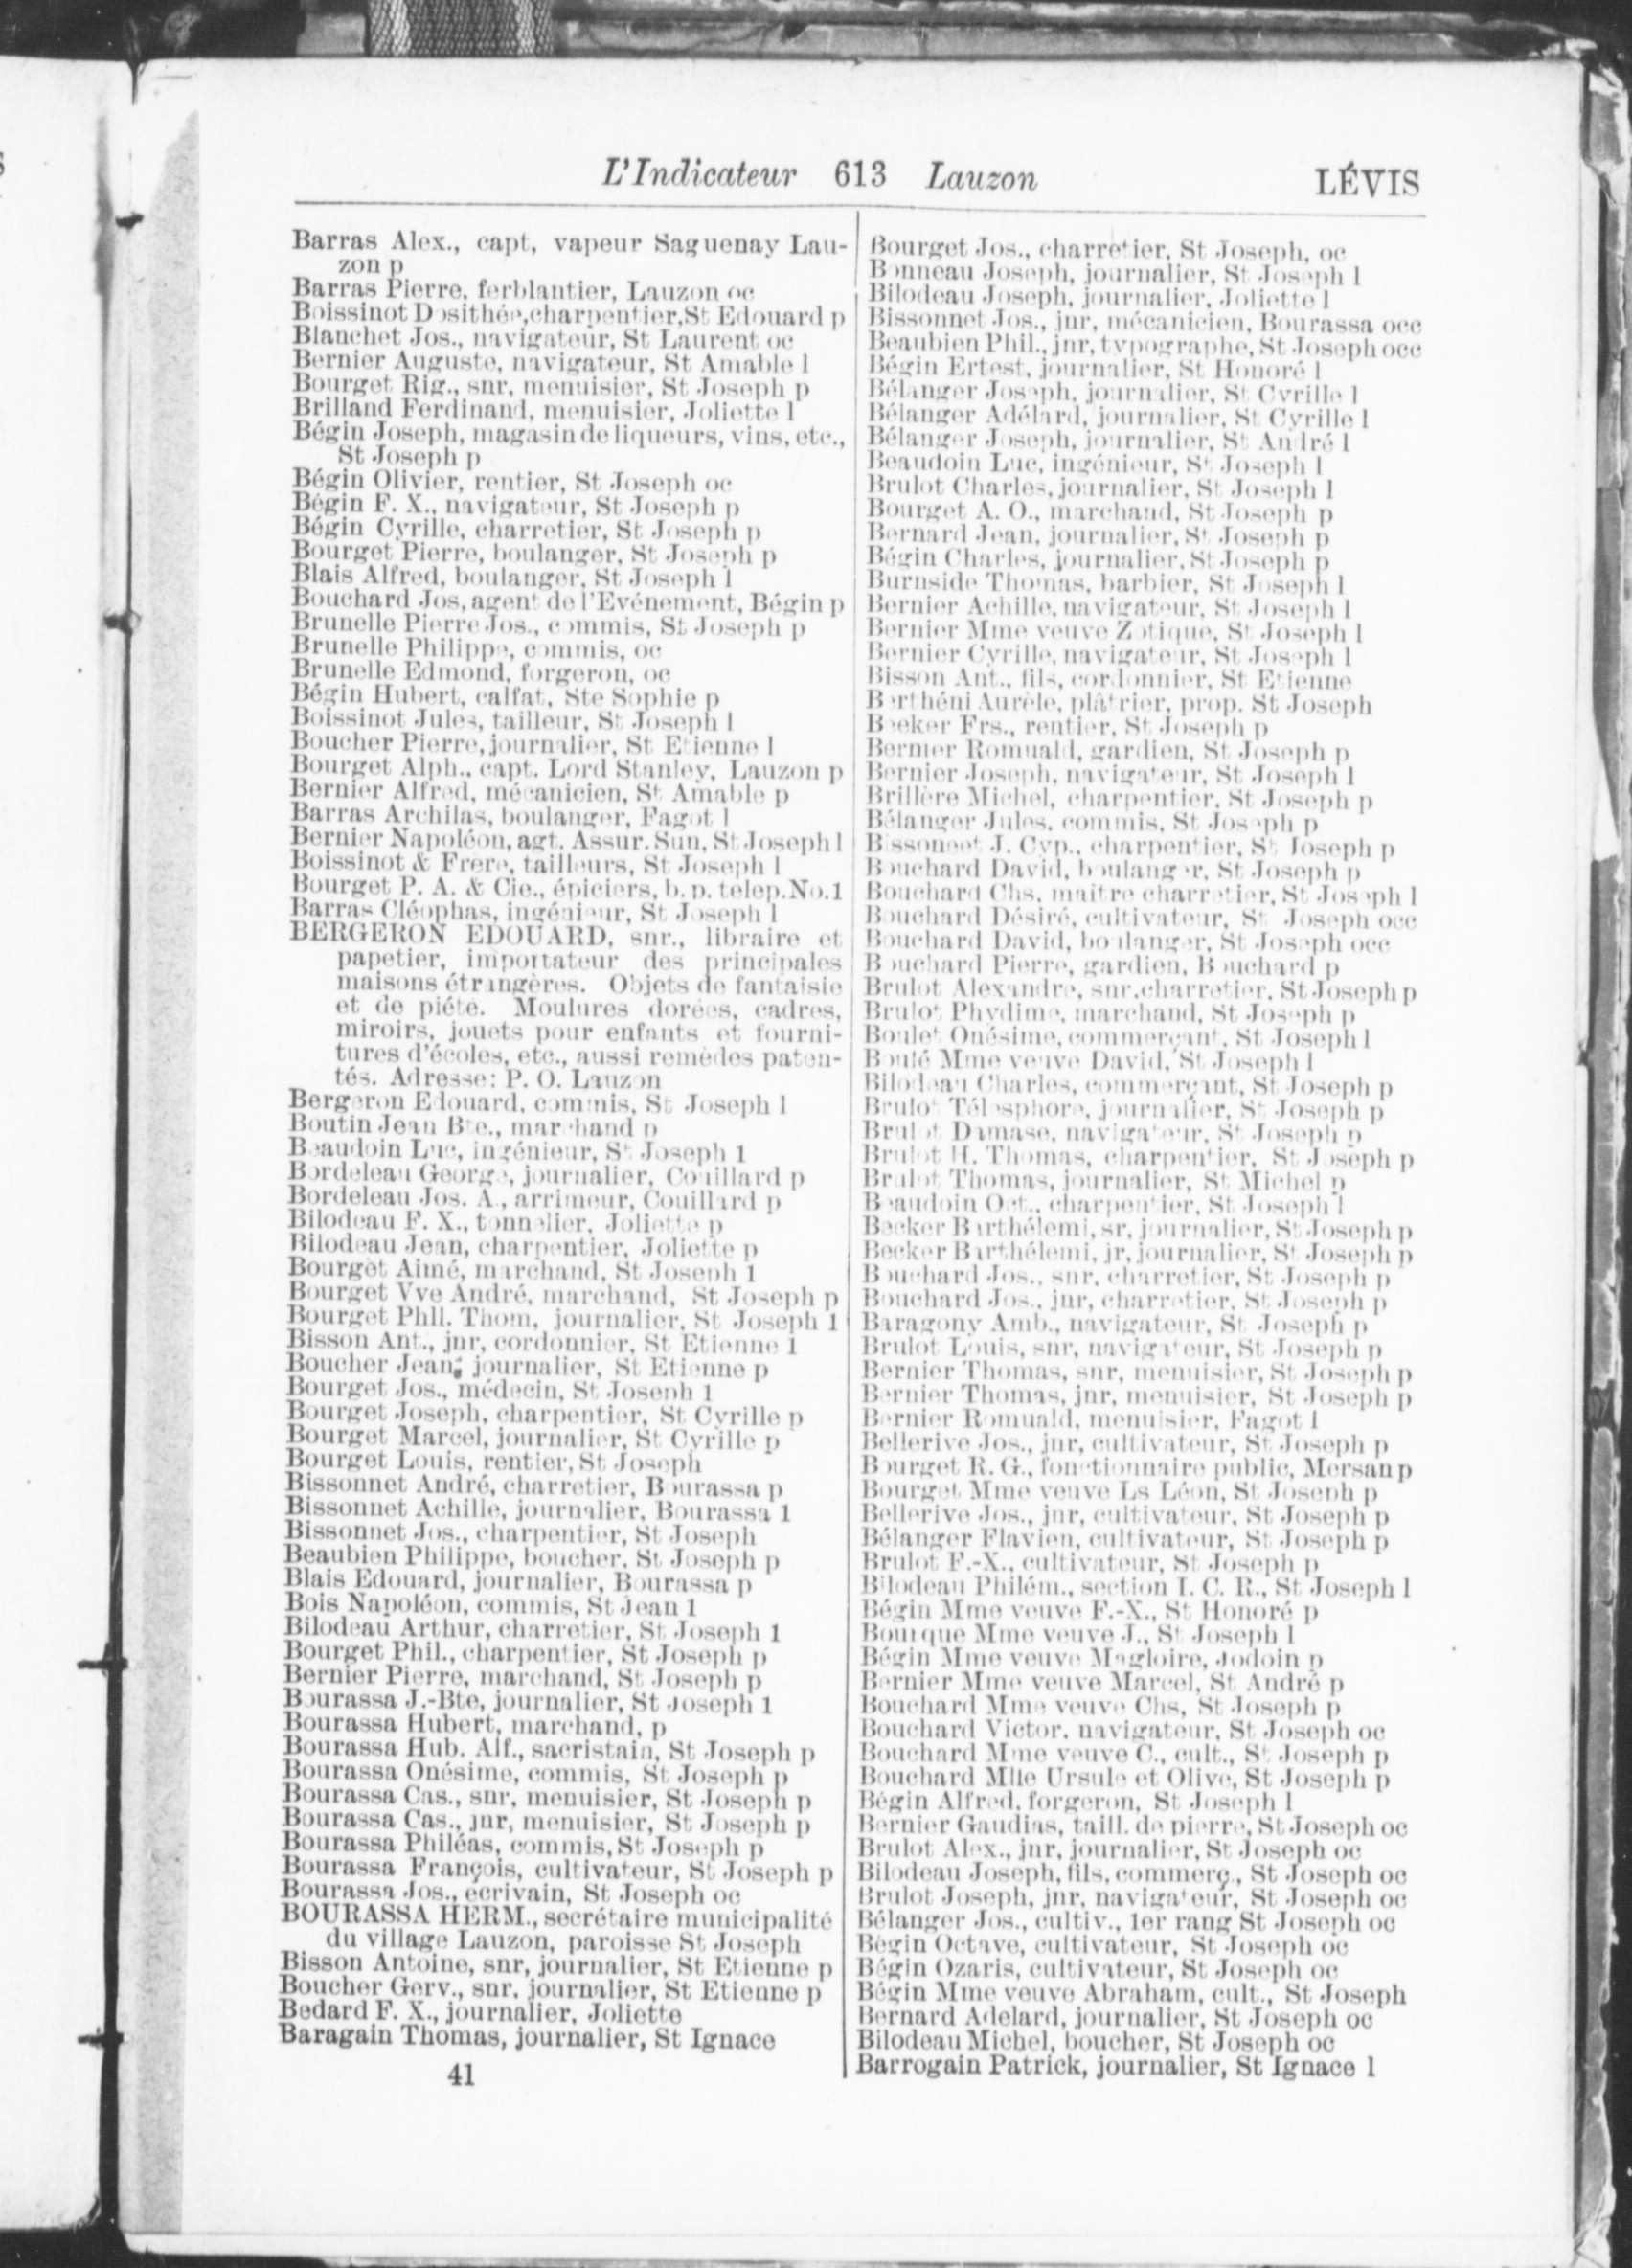 L'Indicateur 613 Lauzon LÉVIS
Barras Alex., capt, vapeur Saguenay Lau-
zon p
Barras Pierre, ferblantier, Lauzon oc
Boissinot Dosithée,charpentier,St Edouard p
Blanchet Jos., navigateur, St Laurent oc
Bernier Auguste, navigateur, St Amable l
Bourget Rig., snr, menuisier, St Joseph p
Brilland Ferdinand, menuisier, Joliette l
Bégin Joseph, magasin de liqueurs, vins, etc.,
St Joseph p
Bégin Olivier, rentier, St Joseph oc
Bégin F. X., navigateur, St Joseph p
Bégin Cyrille, charretier, St Joseph p
Bourget Pierre, boulanger, St Joseph p
Blais Alfred, boulanger, St Joseph l
Bouchard Jos, agent de l'Evénement, Bégin p
Brunelle Pierre Jos., commis, St Joseph p
Brunelle Philippe, commis, oc
Brunelle Edmond, forgeron, oc
Bégin Hubert, calfat, Ste Sophie p
Boissinot Jules, tailleur, St Joseph l
Boucher Pierre, journalier, St Etienne l
Bourget Alph., capt. Lord Stanley, Lauzon p
Bernier Alfred, mécanicien, St Amable p
Barras Archilas, boulanger, Fagot l
Bernier Napoléon, agt. Assur. Sun, St Joseph l
Boissinot & Frere, tailleurs, St Joseph l
Bourget P. A. & Cie., épiciers, b. p. telep. No. 1
Barras Cléophas, ingénieur, St Joseph l
BERGERON EDOUARD, snr., libraire et
papetier, importateur des principales
maisons étrangères. Objets de fantaisie
et de piété. Moulures dorées, cadres,
miroirs, jouets pour enfants et fourni-
tures d'écoles, etc., aussi remèdes paten-
tés. Adresse: P. O. Lauzon
Bergeron Edouard, commis, St Joseph l
Boutin Jean Bte., marchand p
Beaudoin Luc, ingénieur, St Joseph 1
Bordeleau George, journalier, Couillard p
Bordeleau Jos. A., arrimeur, Couillard p
Bilodeau F. X., tonnelier, Joliette p
Bilodeau Jean, charpentier, Joliette p
Bourget Aimé, marchand, St Joseph 1
Bourget Vve André, marchand, St Joseph p
Bourget Phll. Thom, journalier, St Joseph 1
Bisson Ant., jnr, cordonnier, St Etienne 1
Boucher Jean, journalier, St Etienne p
Bourget Jos., médecin, St Joseph 1
Bourget Joseph, charpentier, St Cyrille p
Bourget Marcel, journalier, St Cyrille p
Bourget Louis, rentier, St Joseph
Bissonnet André, charretier, Bourassa p
Bissonnet Achille, journalier, Bourassa 1
Bissonnet Jos., charpentier, St Joseph
Beaubien Philippe, boucher, St Joseph p
Blais Edouard, journalier, Bourassa p
Bois Napoléon, commis, St Jean 1
Bilodeau Arthur, charretier, St Joseph 1
Bourget Phil., charpentier, St Joseph p
Bernier Pierre, marchand, St Joseph p
Bourassa J.-Bte, journalier, St Joseph 1
Bourassa Hubert, marchand, p
Bourassa Hub. Alf., sacristain, St Joseph p
Bourassa Onésime, commis, St Joseph p
Bourassa Cas., snr, menuisier, St Joseph p
Bourassa Cas., jnr, menuisier, St Joseph p
Bourassa Philéas, commis, St Joseph p
Bourassa François, cultivateur, St Joseph p
Bourassa Jos., écrivain, St Joseph oc
BOURASSA HERM., secrétaire municipalité
du village Lauzon, paroisse St Joseph
Bisson Antoine, snr, journalier, St Etienne p
Boucher Gerv., snr. journalier, St Etienne p
Bedard F. X., journalier, Joliette
Baragain Thomas, journalier, St Ignace
41
Bourget Jos., charretier, St Joseph, oc
Bonneau Joseph, journalier, St Joseph l
Bilodeau Joseph, journalier, Joliette l
Bissonnet Jos., jnr, mécanicien, Bourassa occ
Beaubien Phil., jnr, typographe, St Joseph occ
Bégin Ertest, journalier, St Honoré l
Bélanger Joseph, journalier, St Cyrille l
Bélanger Adélard, journalier, St Cyrille l
Bélanger Joseph, journalier, St André l
Beaudoin Luc, ingénieur, St Joseph l
Brulot Charles, journalier, St Joseph l
Bourget A. O., marchand, St Joseph p
Bernard Jean, journalier, St Joseph p
Bégin Charles, journalier, St Joseph p
Burnside Thomas, barbier, St Joseph l
Bernier Achille, navigateur, St Joseph l
Bernier Mme veuve Zotique, St Joseph l
Bernier Cyrille, navigateur, St Joseph l
Bisson Ant., fils, cordonnier, St Etienne
Berthéni Aurèle, plâtrier, prop. St Joseph
Beeker Frs., rentier, St Joseph p
Bernier Romuald, gardien, St Joseph p
Bernier Joseph, navigateur, St Joseph l
Brillère Michel, charpentier, St Joseph p
Bélanger Jules, commis, St Joseph p
Bissonnet J. Cyp., charpentier, St Joseph p
Bouchard David, boulanger, St Joseph p
Bouchard Chs, maître charretier, St Joseph l
Bouchard Désiré, cultivateur, St Joseph occ
Bouchard David, boulanger, St Joseph occ
Bouchard Pierre, gardien, Bouchard p
Brulot Alexandre, snr,charretier, St Joseph p
Brulot Phydime, marchand, St Joseph p
Boulet Onésime, commerçant, St Joseph l
Boulé Mme veuve David, St Joseph l
Bilodeau Charles, commerçant, St Joseph p
Brulot Télesphore, journalier, St Joseph p
Brulot Damase, navigateur, St Joseph p
Brulot H. Thomas, charpentier, St Joseph p
Brulot Thomas, journalier, St Michel p
Beaudoin Oct., charpentier, St Joseph l
Becker Barthélemi, sr, journalier, St Joseph p
Becker Barthélemi, jr, journalier, St Joseph p
Bouchard Jos., snr, charretier, St Joseph p
Bouchard Jos., jnr, charretier, St Joseph p
Baragony Amb., navigateur, St Joseph p
Brulot Louis, snr, navigateur, St Joseph p
Bernier Thomas, snr, menuisier, St Joseph p
Bernier Thomas, jnr, menuisier, St Joseph p
Bernier Romuald, menuisier, Fagot l
Bellerive Jos., jnr, cultivateur, St Joseph p
Bourget R. G., fonctionnaire public, Mersan p
Bourget Mme veuve Ls Léon, St Joseph p
Bellerive Jos., jnr, cultivateur, St Joseph p
Bélanger Flavien, cultivateur, St Joseph p
Brulot F.-X., cultivateur, St Joseph p
Bilodeau Philém., section I. C. R., St Joseph l
Bégin Mme veuve F.-X., St Honoré p
Bourque Mme veuve J., St Joseph l
Bégin Mme veuve Magloire, Jodoin p
Bernier Mme veuve Marcel, St André p
Bouchard Mme veuve Chs, St Joseph p
Bouchard Victor, navigateur, St Joseph oc
Bouchard Mme veuve C., cult., St Joseph p
Bouchard Mlle Ursule et Olive, St Joseph p
Bégin Alfred, forgeron, St Joseph l
Bernier Gaudias, taill. de pierre, St Joseph oc
Brulot Alex., jnr, journalier, St Joseph oc
Bilodeau Joseph, fils, commerç., St Joseph oc
Brulot Joseph, jnr, navigateur, St Joseph oc
Bélanger Jos., cultiv., 1er rang St Joseph oc
Bégin Octave, cultivateur, St Joseph oc
Bégin Ozaris, cultivateur, St Joseph oc
Bégin Mme veuve Abraham, cult., St Joseph
Bernard Adelard, journalier, St Joseph oc
Bilodeau Michel, boucher, St Joseph oc
Barrogain Patrick, journalier, St Ignace l